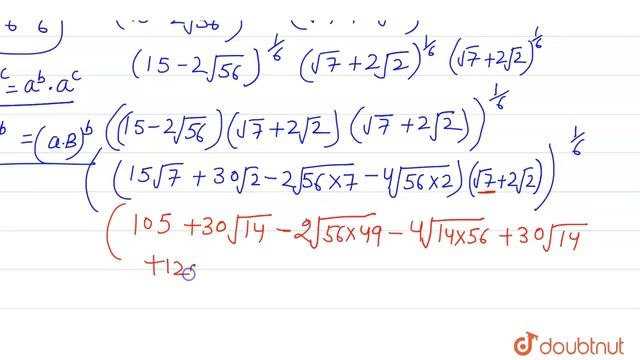 6 6
(15-2√56)^(1/6) (√7+2√2)^(1/6) (√7+2√2)^(1/6)
c = a^b · a^c
((15-2√56)(√7+2√2)(√7+2√2))^(1/6)
b = (a.B)^b
((15√7+30√2-2√56×7-4√56×2)(√7+2√2))^(1/6)
(105+30√14-2√56×49-4√14×56+30√14
+12
doubtnut